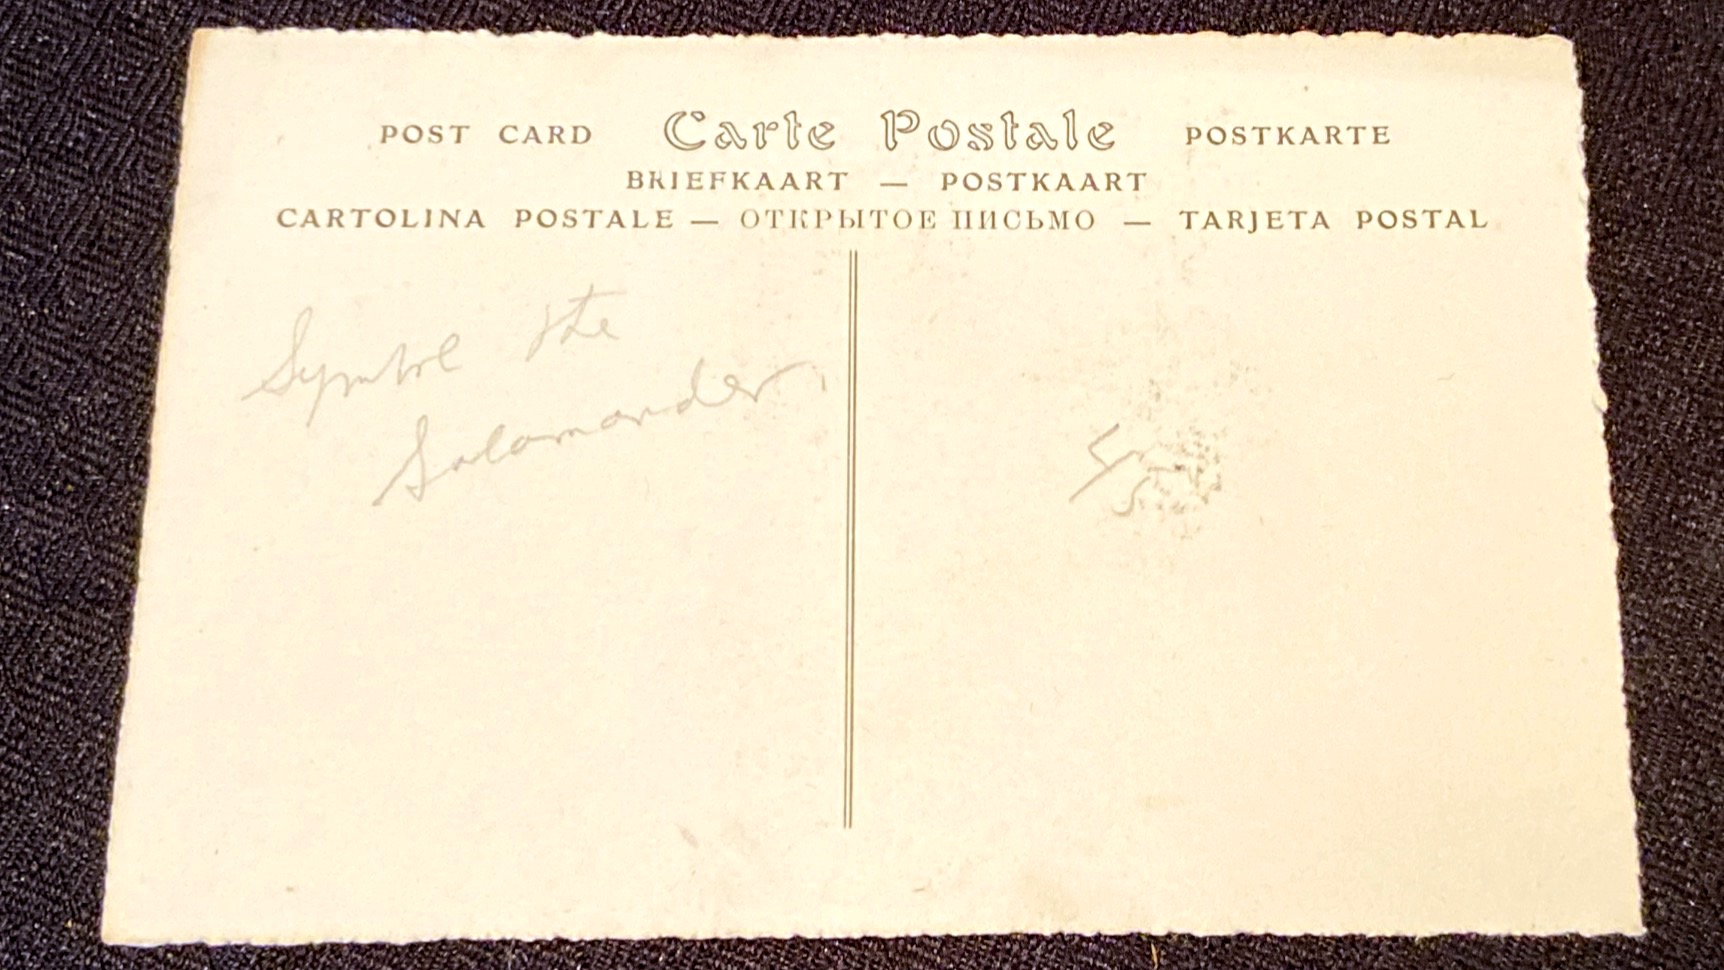 POST CARD Carte Postale POSTKARTE
BRIEFKAART — POSTKAART
CARTOLINA POSTALE — ОТКРЫТОЕ ПИСЬМО — TARJETA POSTAL
Symbol the
Salamander